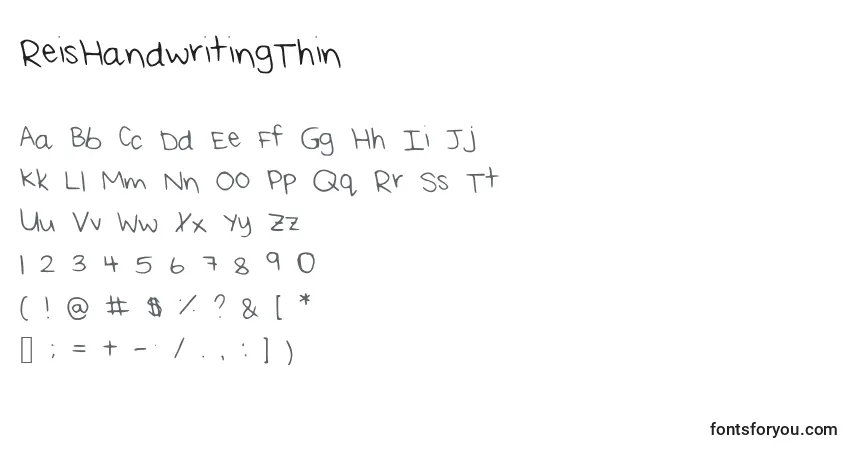 ReisHandwritingThin
Aa Bb Cc Dd Ee Ff Gg Hh Ii Jj
Kk Ll Mm Nn Oo Pp Qq Rr Ss Tt
Uu Vv Ww Xx Yy Zz
1 2 3 4 5 6 7 8 9 0
( ! @ # $ % ? & [ *
; = + - / . , : ] )
fontsforyou.com